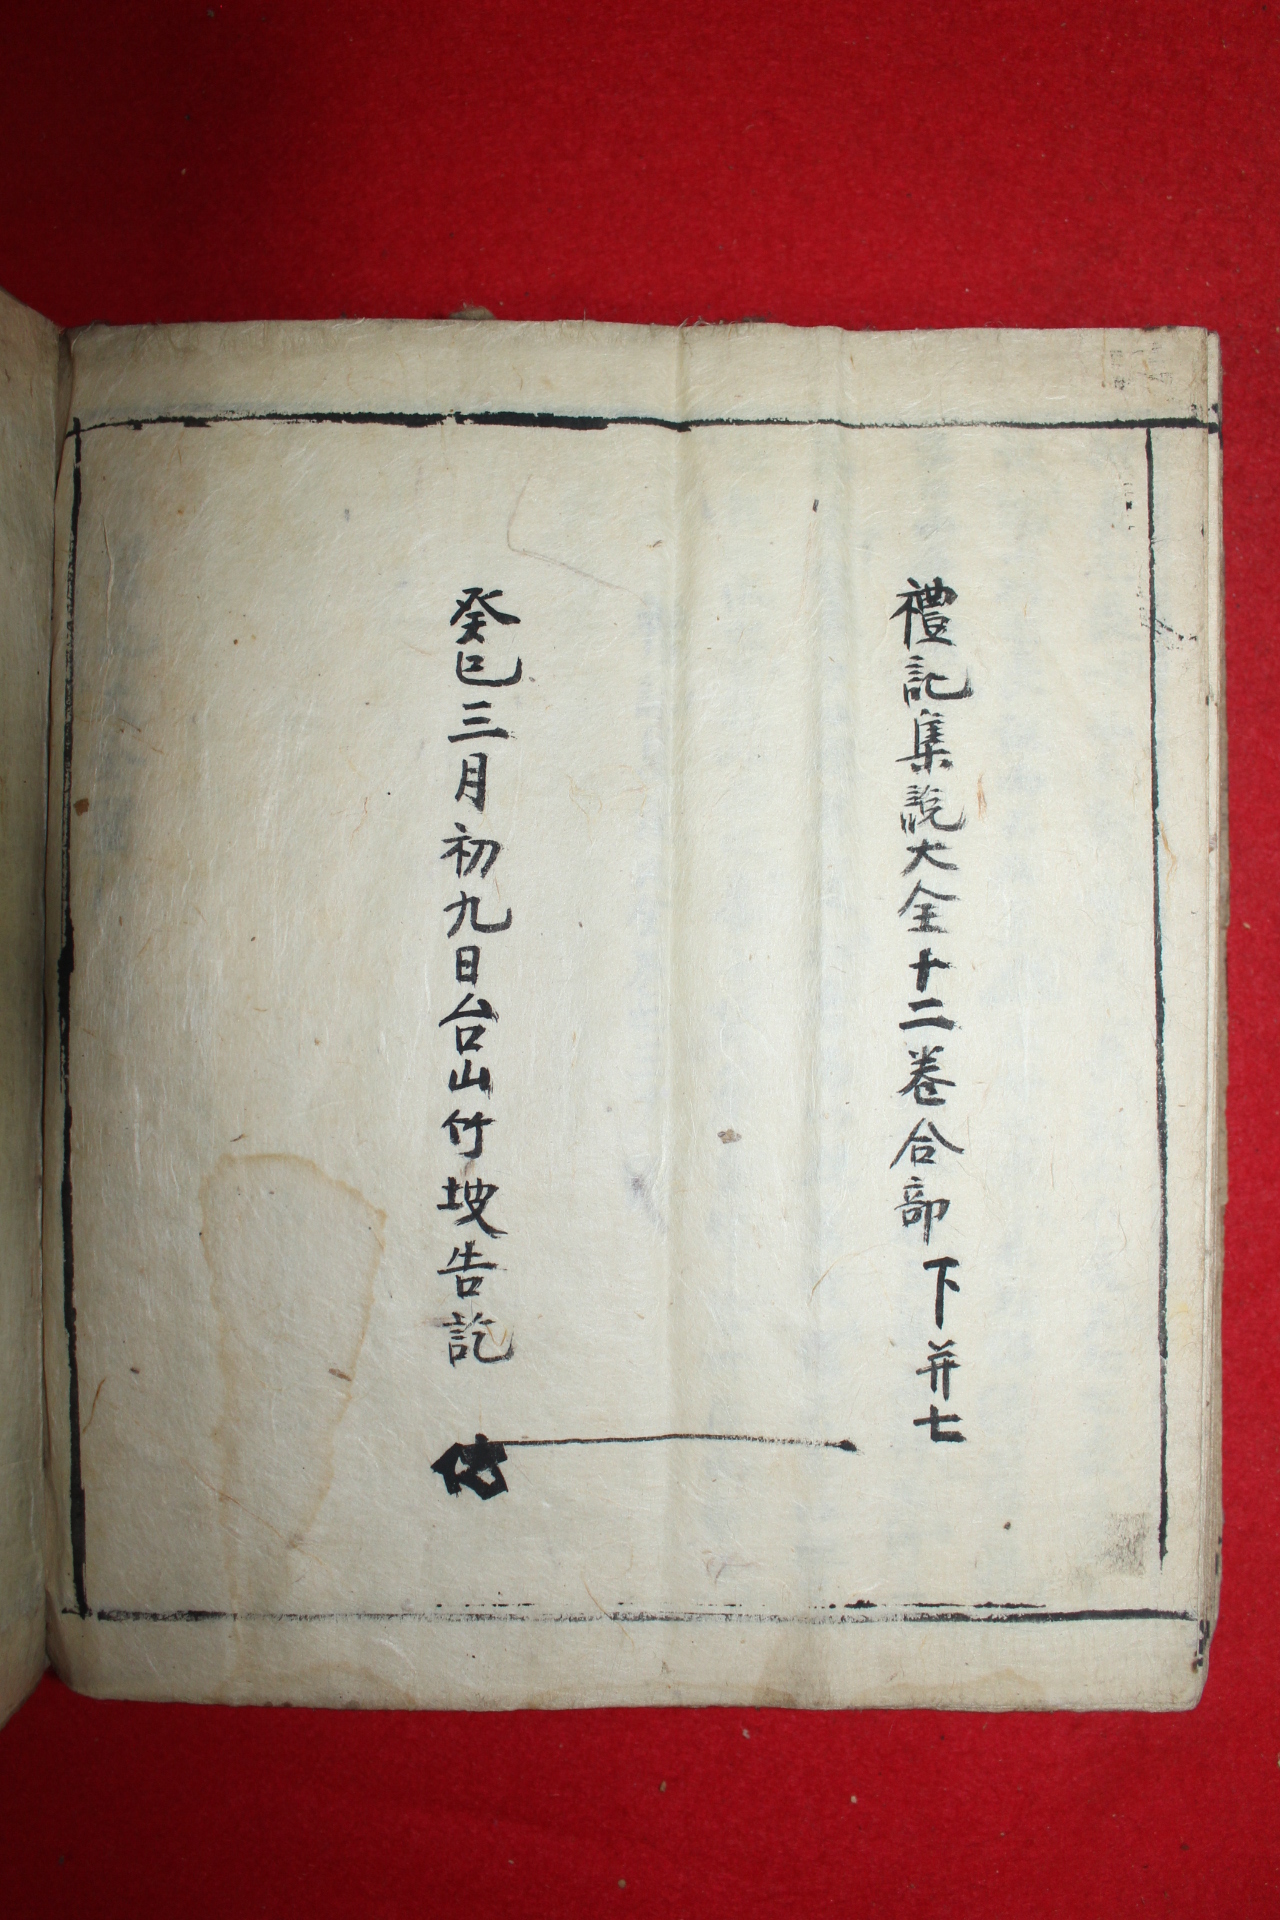 禮記集說大全十二卷合部下并七
癸巳三月初九日台山竹坡告訖